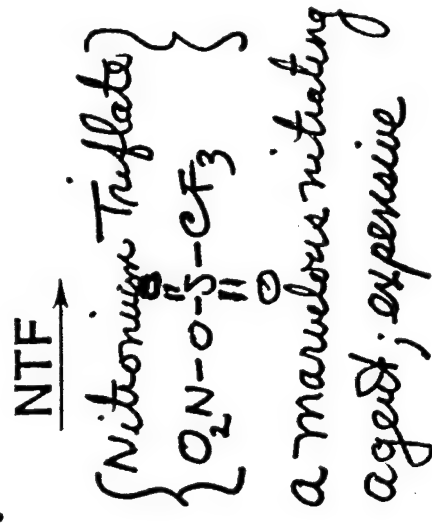 NTF
{Nitronium Triflate}
O
O₂N-O-S-CF₃
O
a marvelous nitrating
agent; expensive